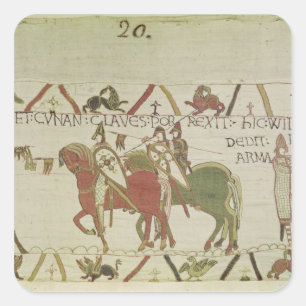 20.
ET:CVNAN:CLAVES:POR REXIT:HIC:WIL
DEDIT:
ARMA